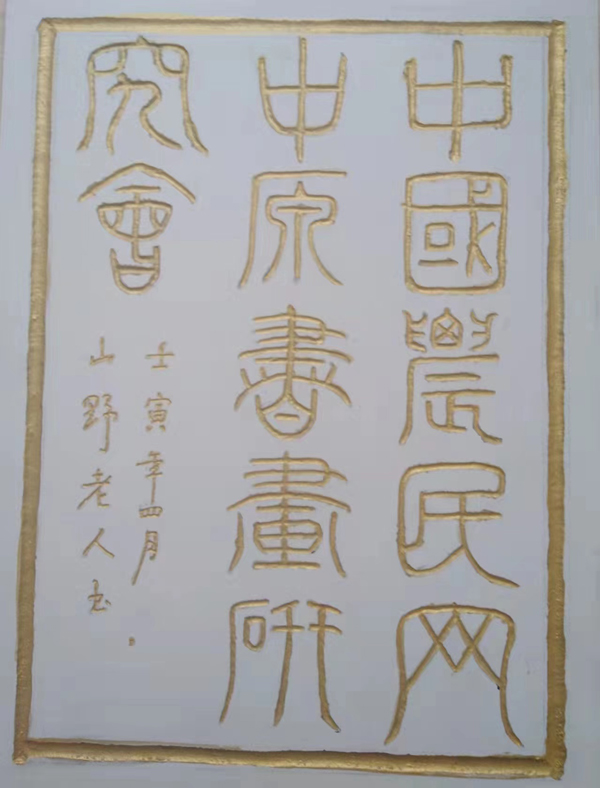 中國農民网
中原書畫研
究會
壬寅年四月
山野老人书